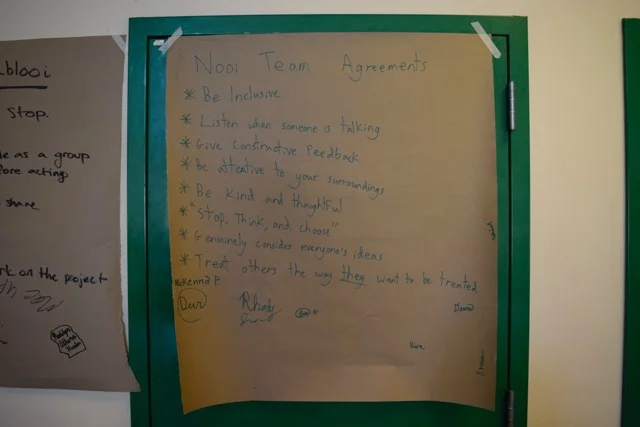 blooi
Stop.
as a group
acting
share
on the project
Nooi Team Agreements
* Be Inclusive
* Listen when someone is talking
* Give Constructive Feedback
* Be attentive to your surroundings
* Be Kind and thoughtful
* "Stop, Think, and choose"
* Genuinely consider everyone's ideas
* Treat others the way they want to be treated
McKenna P.
Rhody